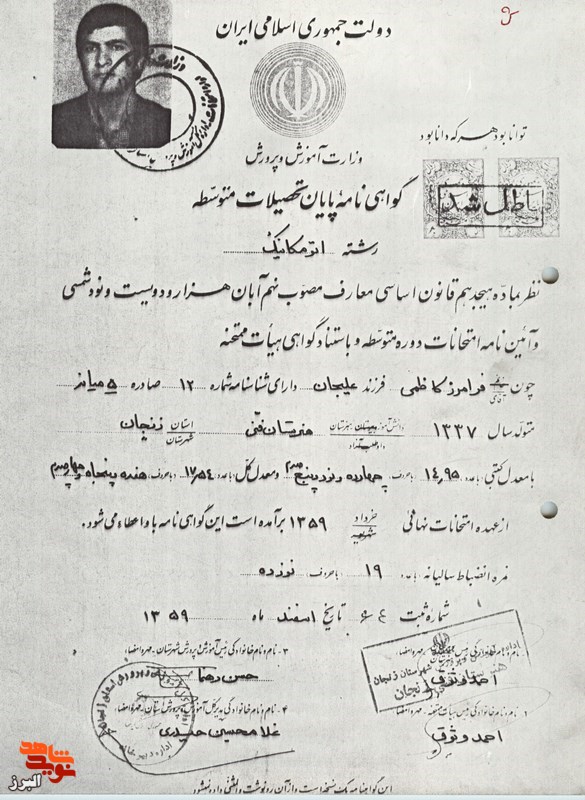 دولت جمهوری اسلامی ایران
توانا بود هر که دانا بود
وزارت آموزش و پرورش
گواهی نامهٔ پایان تحصیلات متوسطه
باطل شد
رشته اتومکانیک
نظر بماده هیجدهم قانون اساسی معارف مصوب نهم آبان هزار و دویست و نود شمسی
و آئین نامه امتحانات دوره متوسطه و باستناد گواهی هیأت ممتحنه
چون آقای فرامرز کاظمی فرزند علیجان دارای شناسنامه شماره ۱۲ صادره ۵ میانه
متولد سال ۱۳۳۷ دانش آموز هنرستان فنی استان شهرستان زنجان
با معدل کتبی با عدد ۱۴٫۹۵ با حروف چهارده و نود پنج صدم و معدل کل با عدد ۱۷٫۵۴ با حروف هفده پنجاه و چهار صدم
از عهده امتحانات نهائی خرداد شهریور ۱۳۵۹ برآمده است این گواهی نامه باو اعطاء می شود.
نمره انضباط سالیانه با عدد ۱۹ با حروف نوزده
شماره ثبت ۶۴ تاریخ اسفند ماه ۱۳۵۹
۳ - نام و نام خانوادگی رئیس آموزش و پرورش شهرستان - مهر و امضاء
حسن رضا
احمد وثوق
۴ - نام و نام خانوادگی مدیر کل آموزش و پرورش استان - مهر و امضاء
غلامحسین حیدری
احمد وثوق
این گواهینامه یک نسخه است و از آن رونوشت و المثنی داده نمیشود
نوید شاهد
البرز